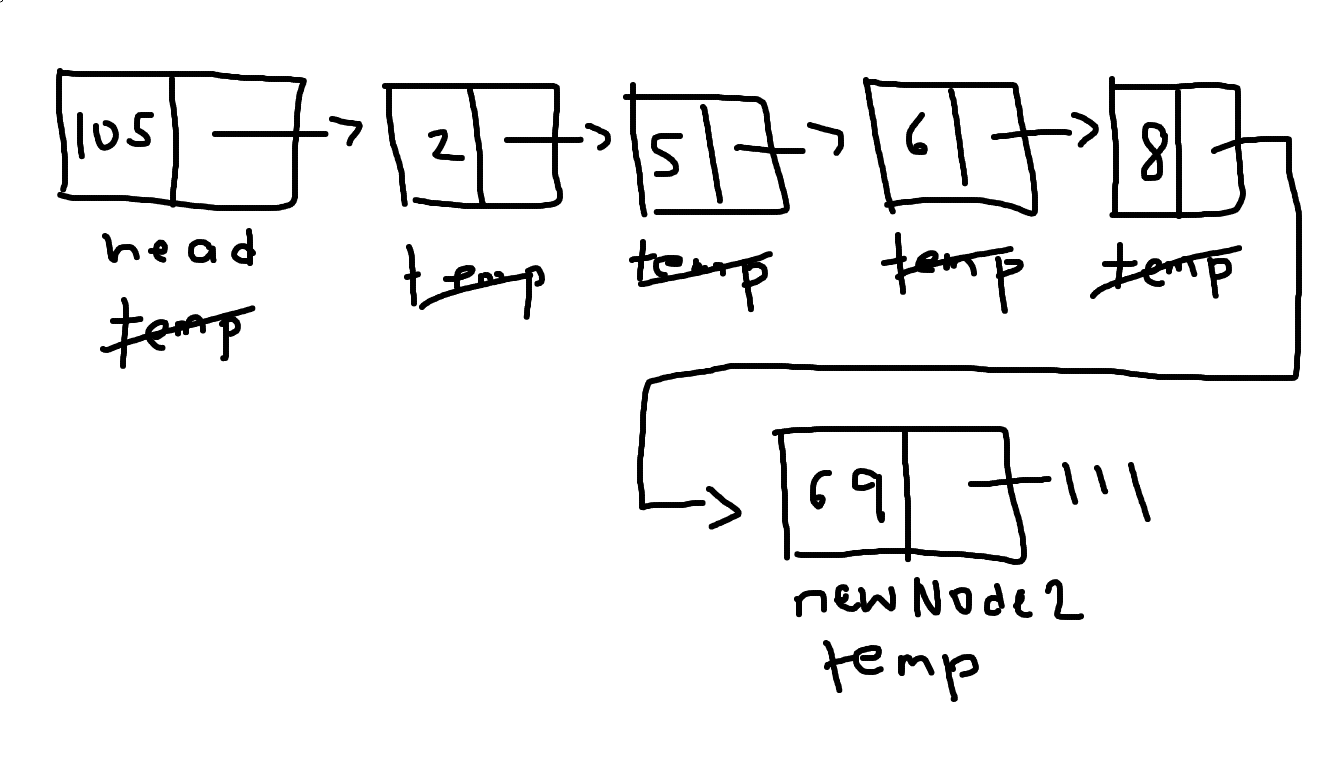 105 2 5 6 8
head temp temp temp temp
temp
69
newNode2
temp